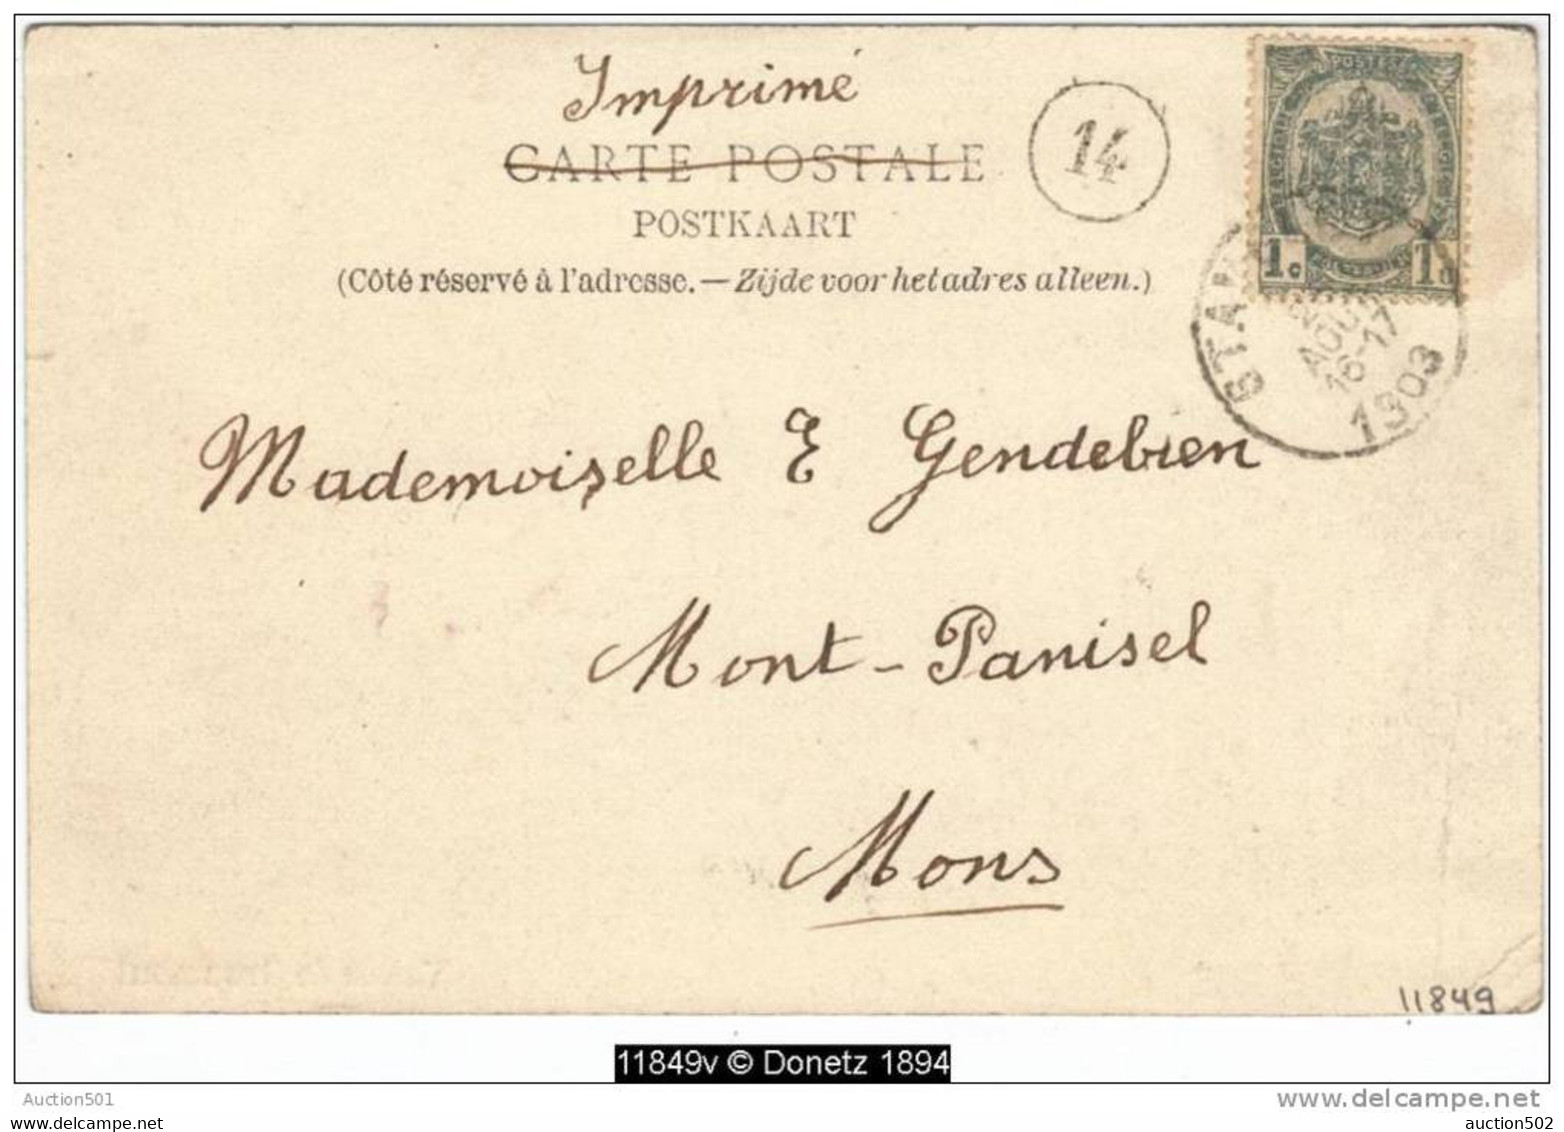 Imprimé
CARTE POSTALE
14
POSTKAART
(Côté réservé à l'adresse. — Zijde voor het adres alleen.)
POSTES
1c 1c
AOUT
16-17
1903
Mademoiselle E Gendebien
Mont-Panisel
Mons
11849
11849v © Donetz 1894
Auction501
www.delcampe.net
auction502
auction502